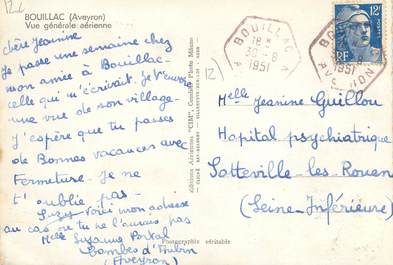 122
BOUILLAC (Aveyron)
Vue générale aérienne
chère Jeanine
Je passe une semaine chez
mon amie à Bouillac-
celle qui m'écrivait. Je t'envoie
une vue de son village-
J'espère que tu passes
de Bonnes vacances avec
Fermeture - Je ne
t'oublie pas -
Suzy Voici mon adresse
au cas où tu ne l'aurais pas
Melle Suzanne Portal
Combes d'Aubin
(Aveyron)
Edition Aérienne "CIM", Combier Photo Mâcon
Photographie véritable
BOUILLAC
18 H
30-8
1951
A
12F
RF
BOUILLAC
1951
AVEYRON
12
Melle Jeanine Guillou
Hopital psychiatrique
Sotteville-les-Rouen
(Seine-Inférieure)